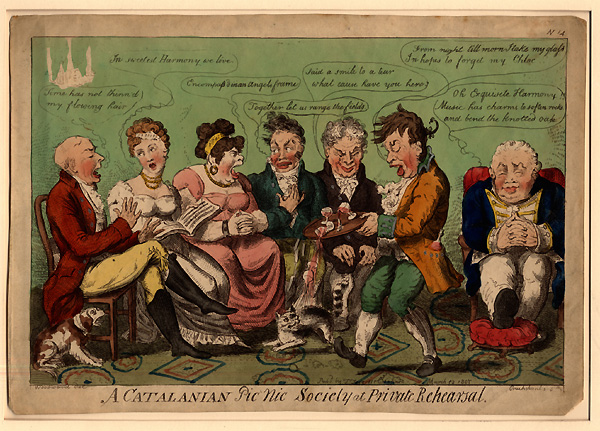 No 14
In sweetest Harmony we live
From night till morn I take my glass
In hopes to forget my Chloe
Said a smile to a tear
what cause have you here?
Encompass'd in an angels frame
Time has not thinn'd
my flowing hair!
Together let us range the fields
Oh Exquisite Harmony
Music has charms to soften rocks
and bend the knotted oak
Woodward Del
March 12 1807
Cruikshank
A CATALANIAN Pic Nic Society at Private Rehearsal.